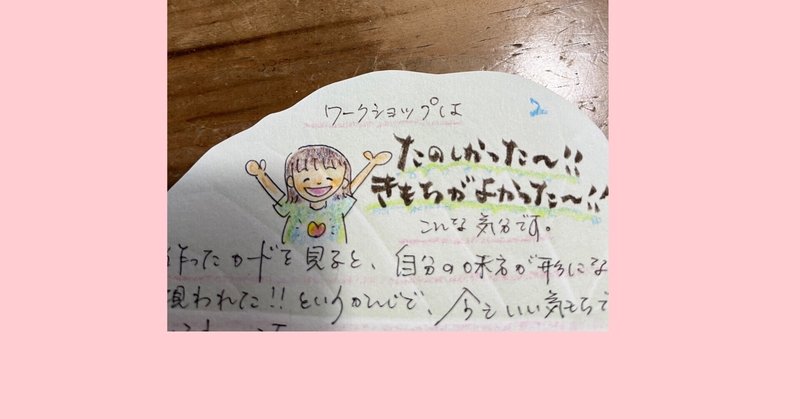 ワークショップは
2
たのしかった〜!!
きもちがよかった〜!!
こんな気分です。
作ったカードを見ると、自分の味方が形にな
現われた!!というかんじで、今もいい気もちで